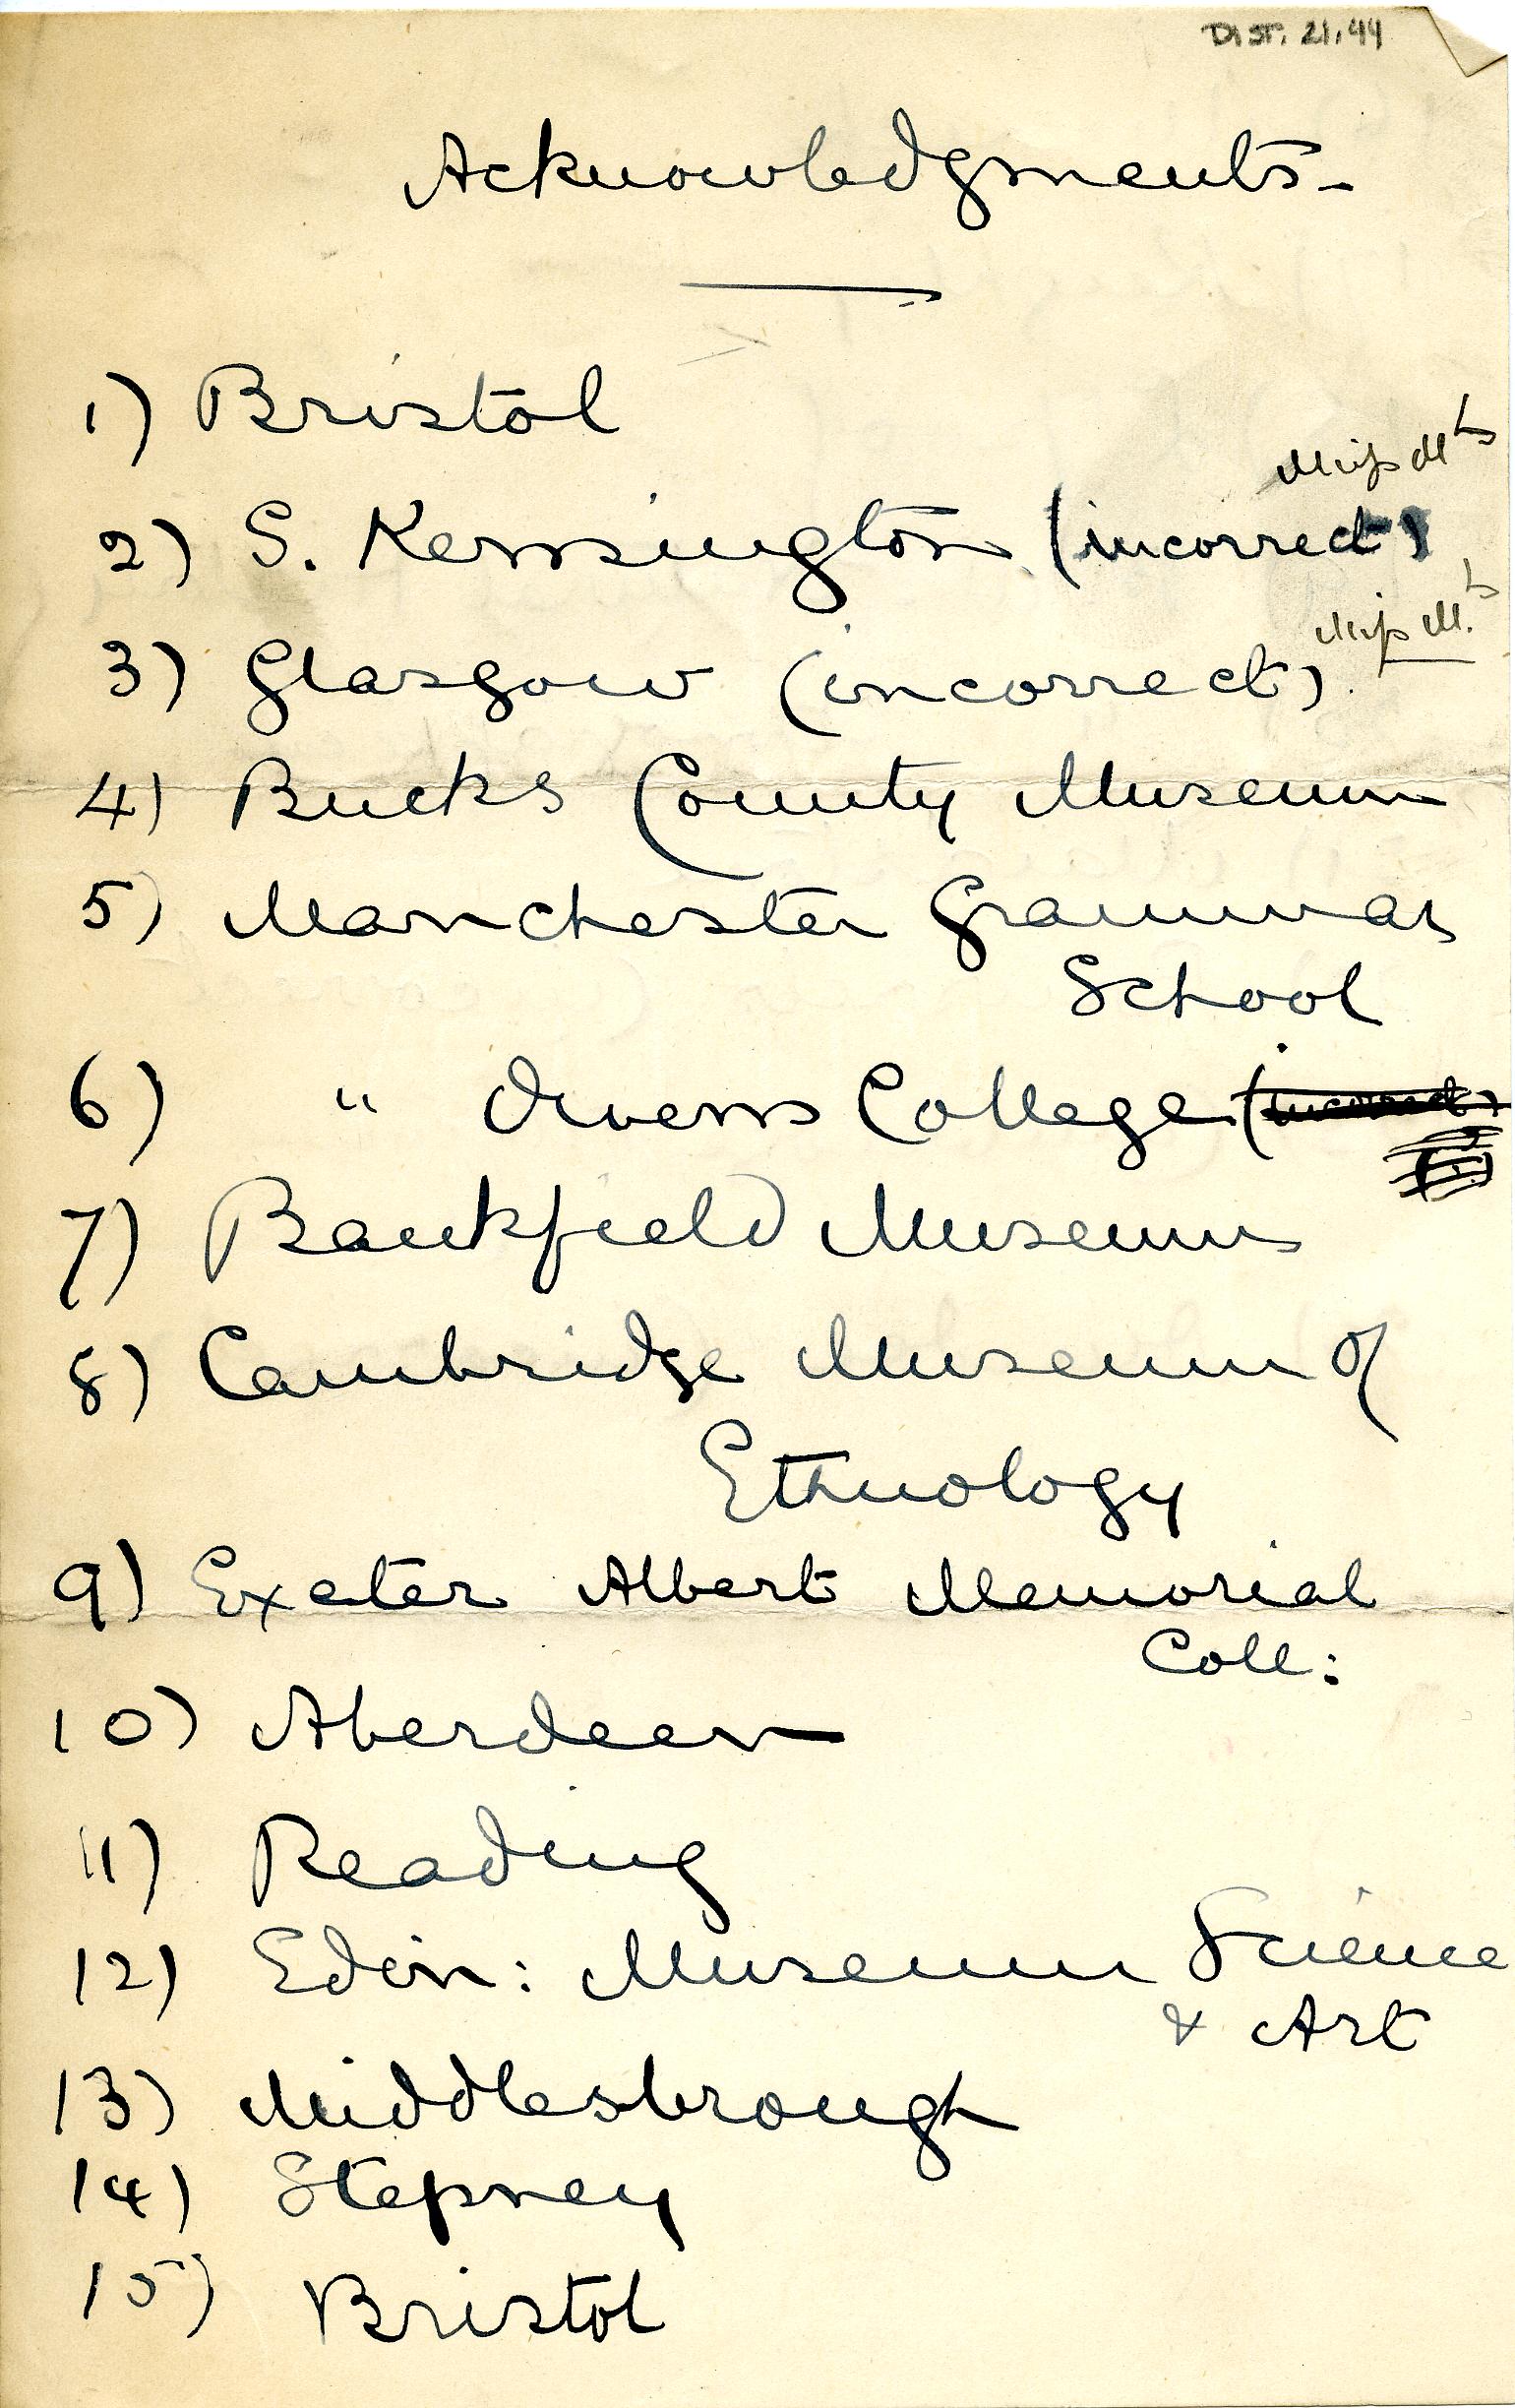 DIST. 21.44
Acknowledgments-
1) Bristol
Miss Mts
2) S. Kensington (incorrect)
Miss M.ts
3) Glasgow (incorrect).
4) Bucks County Museum
5) Manchester Grammar
School
6) " Owens College (incorrect)
7) Bankfield Museum
8) Cambridge Museum of
Ethnology
9) Exeter Albert Memorial
Coll:
10) Aberdeen
11) Reading
12) Edin: Museum Science
& Art
13) Middlesbrough
14) Stepney
15) Bristol